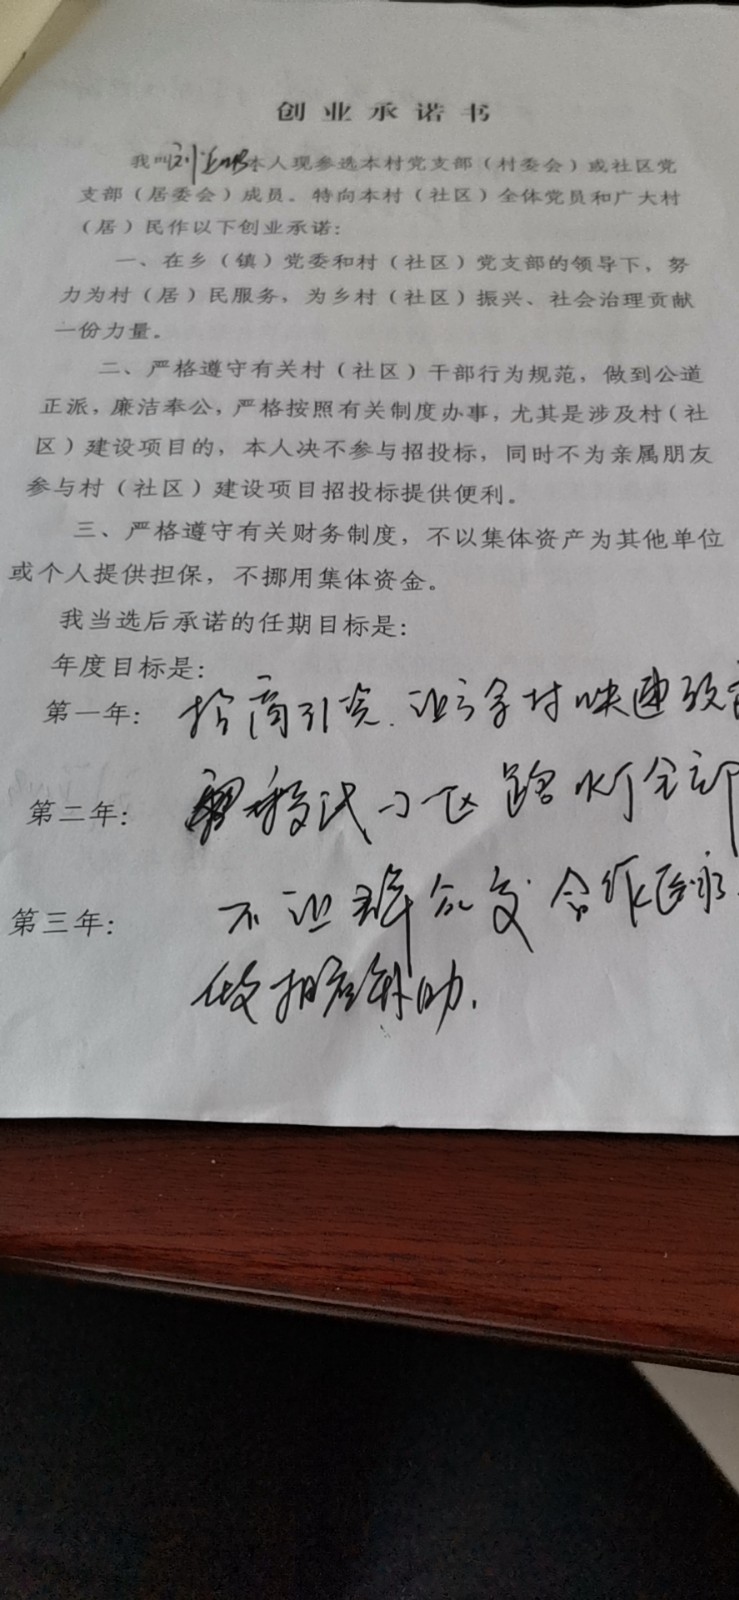 创业承诺书
我叫刘本人现参选本村党支部（村委会）或社区党
支部（居委会）成员。特向本村（社区）全体党员和广大村
（居）民作以下创业承诺：
一、在乡（镇）党委和村（社区）党支部的领导下，努
力为村（居）民服务，为乡村（社区）振兴、社会治理贡献
一份力量。
二、严格遵守有关村（社区）干部行为规范，做到公道
正派，廉洁奉公，严格按照有关制度办事，尤其是涉及村（社
区）建设项目的，本人决不参与招投标，同时不为亲属朋友
参与村（社区）建设项目招投标提供便利。
三、严格遵守有关财务制度，不以集体资产为其他单位
或个人提供担保，不挪用集体资金。
我当选后承诺的任期目标是：
年度目标是：
第一年：招商引资.让村快速致
第二年：小区路灯全部
第三年：不让群众交合作医
做相应补助.